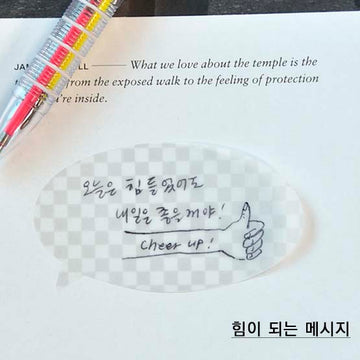 What we love about the temple is the
from the exposed walk to the feeling of protection
're inside.
오늘은 힘들었어도
내일은 좋을꺼야!
cheer up!
힘이 되는 메시지